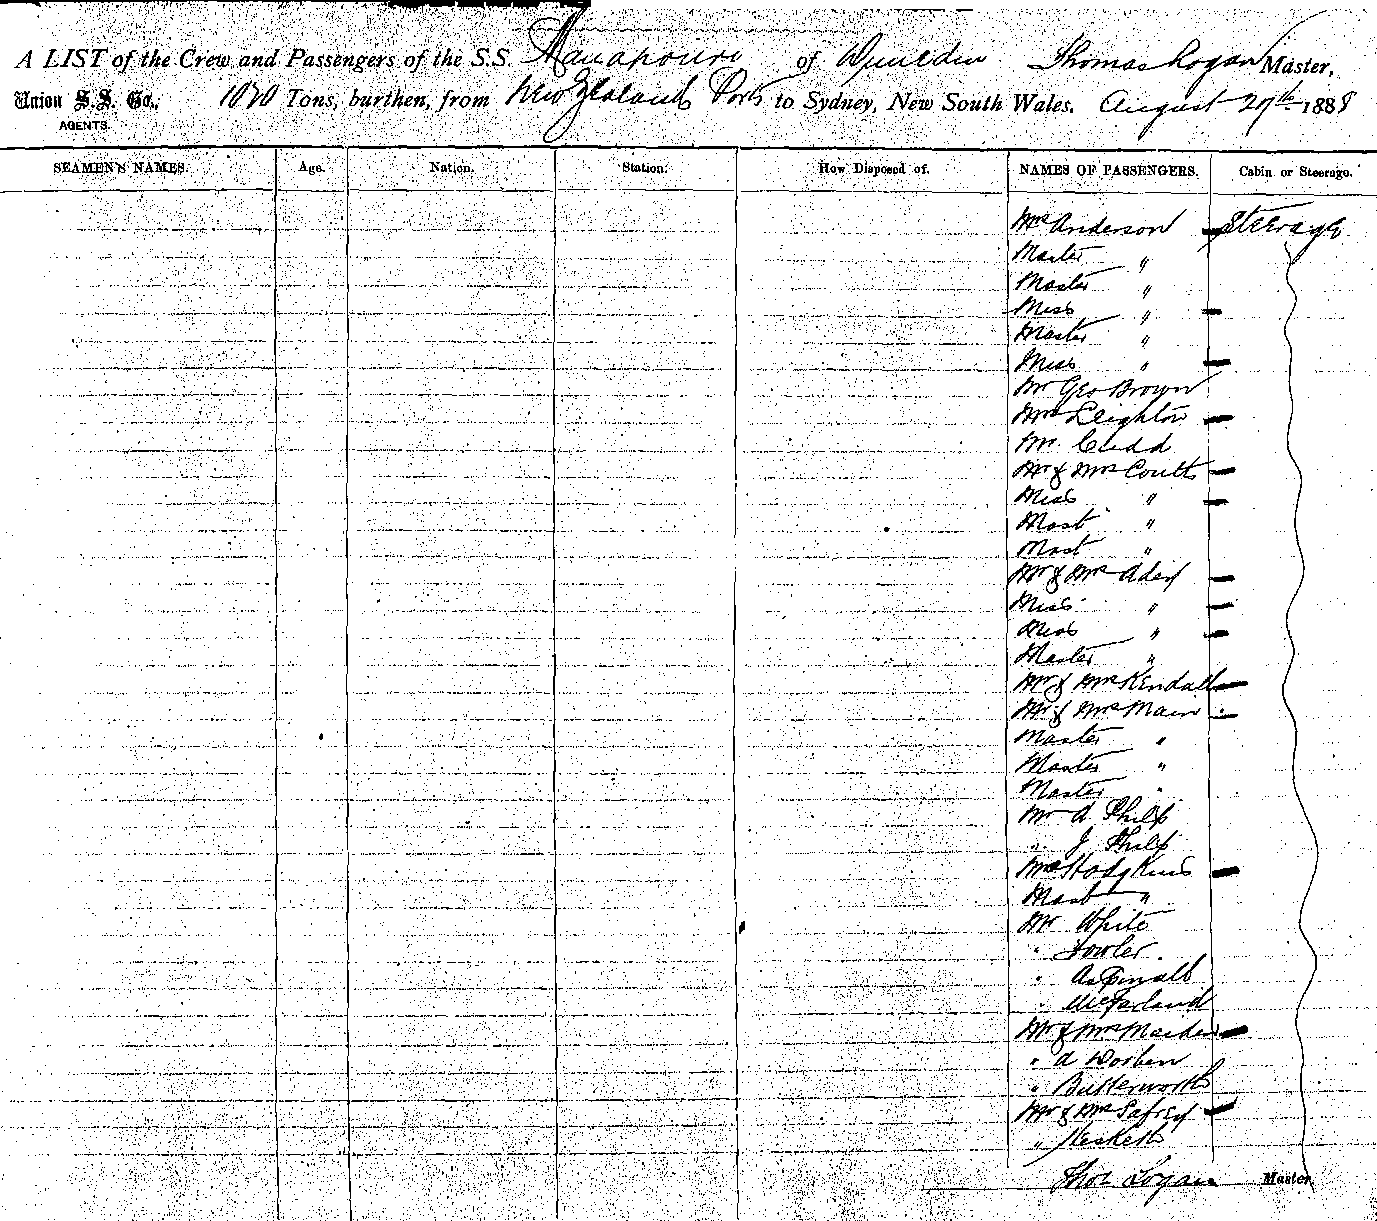 A LIST of the Crew and Passengers of the S.S. Manapouri of Dunedin Thomas Logan Master,
Union S.S. Co., 1020 Tons, burthen, from New Zealand Ports to Sydney, New South Wales. August 27th 1888
AGENTS.
SEAMEN'S NAMES. Age. Nation. Station. How Disposed of. NAMES OF PASSENGERS. Cabin or Steerage.
Mrs Anderson Steerage
Master "
Master "
Miss "
Master "
Miss "
Mr Geo Brown
Mrs Leighton
Mr Cudd
Mr & Mrs Coutts
Miss "
Mast "
Mast "
Mr & Mrs Adey
Miss "
Miss "
Master "
Mr & Mrs Kendall
Mr & Mrs Main
Master "
Master "
Master "
Mr A Philp
" J Philp
Mrs Hodgkins
Mast "
Mr White
" Fowler
" Aspinall
" McFarland
Mr & Mrs Maiden
" A Dorben
" Butterworth
Mr & Mrs
" Hesketh
Thos Logan Master